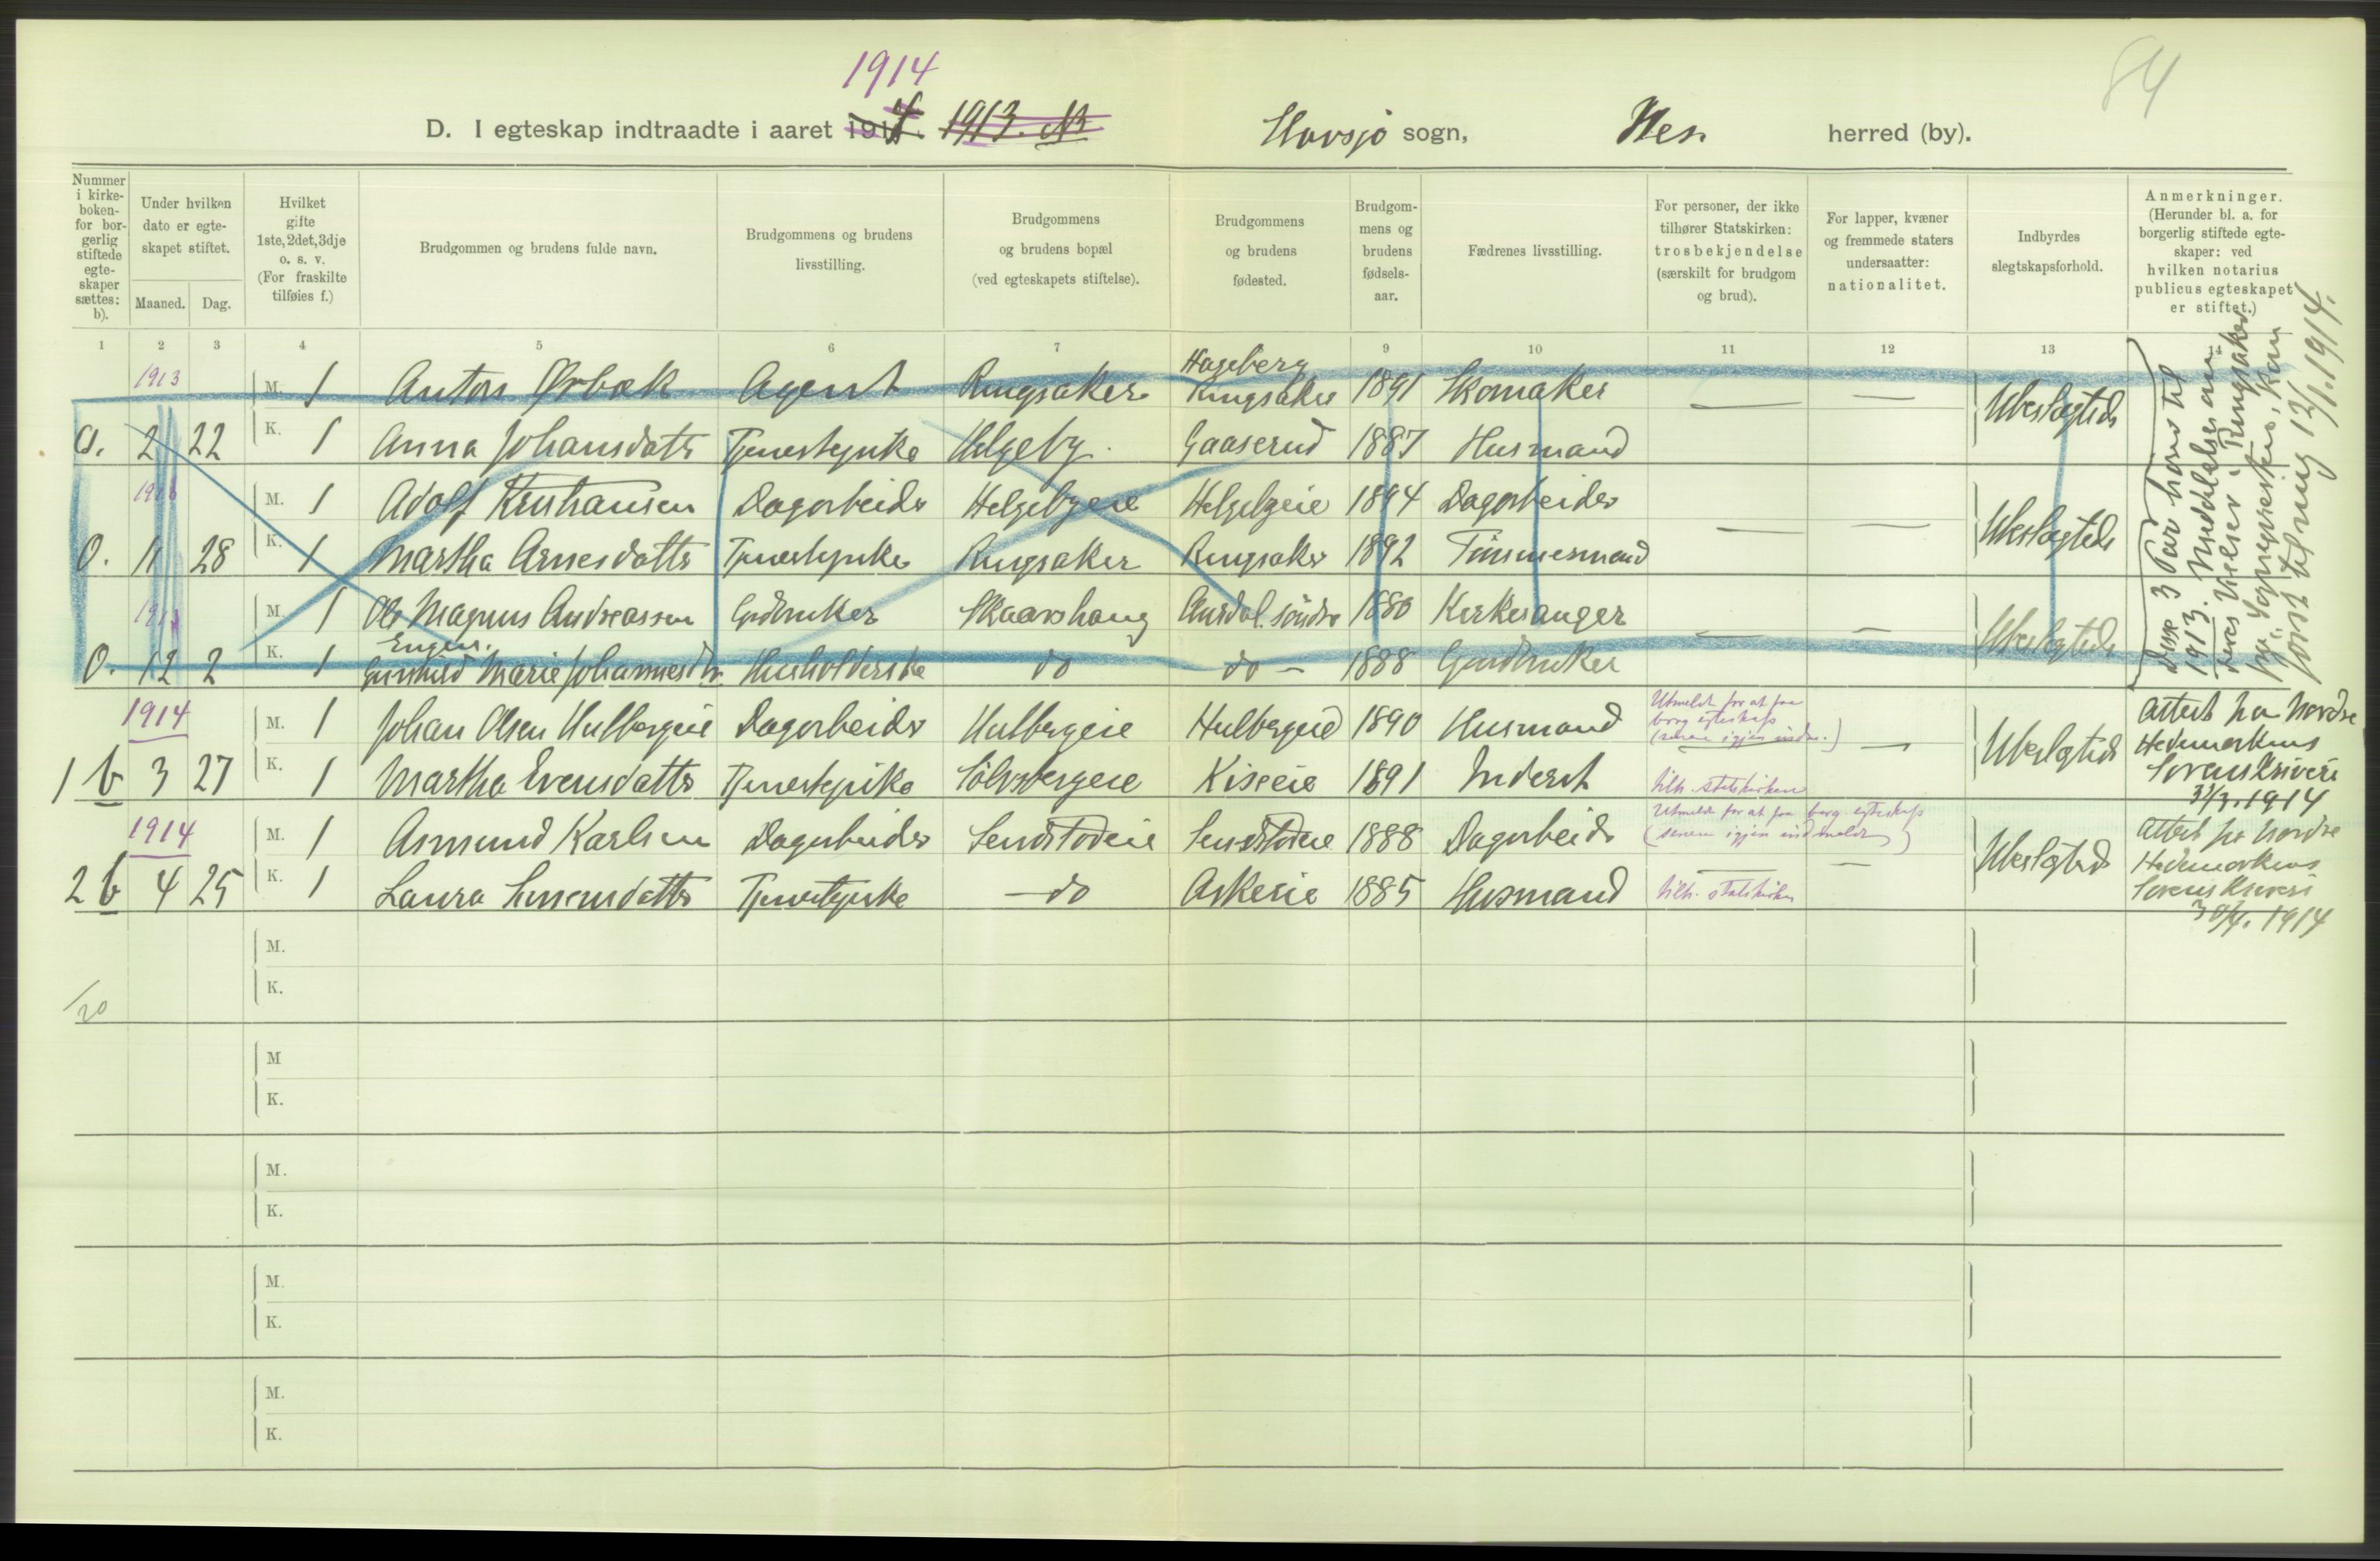 84
1914
D. I egteskap indtraadte i aaret 191 1913. sogn, Nes. herred (by).
Nummer i kirke-boken- for bor-gerlig stiftede egte-skaper sættes: b).
Under hvilken dato er egte-skapet stiftet.
Maaned. Dag.
Hvilket gifte 1ste, 2det, 3dje o. s. v. (For fraskilte tilføies f.)
Brudgommen og brudens fulde navn.
Brudgommens og brudens livsstilling.
Brudgommens og brudens bopæl (ved egteskapets stiftelse).
Brudgommens og brudens fødested.
Brudgom-mens og brudens fødsels-aar.
Fædrenes livsstilling.
For personer, der ikke tilhører Statskirken: trosbekjendelse (særskilt for brudgom og brud).
For lapper, kvæner og fremmede staters undersaatter: nationalitet.
Indbyrdes slegtskapsforhold.
Anmerkninger. (Herunder bl. a. for borgerlig stiftede egte-skaper: ved hvilken notarius publicus egteskapet er stiftet.)
1 2 3 4 5 6 7 9 10 11 12 13 14
1913 M. 1 Anton Ørbæk Agent Ringsaker Hageberg Ringsaker 1891 Skomaker — — Ubeslegtede
0. 2 22 K. 1 Anna Johansdatter Tjenestepike Helgeby Gaaserud 1887 Husmand
1913 M. 1 Adolf Kristiansen Dagarbeider Helgebyeie Helgebyeie 1894 Dagarbeider — — Ubeslegtede
0. 11 28 K. 1 Martha Arnesdatter Tjenestepike Ringsaker Ringsaker 1892 Tømmermand
1913 M. 1 Ole Magnus Andreassen Engen. Gårdbruker Skaarshaug Aurdal. søndre 1880 Kirkesanger — — Ubeslegtede
0. 12 2 K. 1 Gunhild Marie Johannesdtr. Husholderske do do — 1888 Gårdbruker
Disse 3 Par hører til 1913. Meddelelse om deres vielser i Ringsaker nye Sognepresten, kom først til mig 12/1. 1914.
1914 M. 1 Johan Olsen Hulbergeie Dagarbeider Hulbergeie Hulbergeie 1890 Husmand Utmeldt for at faa borg. egteskap (senere igjen indm.) — Ubeslegtede
1 b 3 27 K. 1 Martha Evensdatter Tjenestepike Sølvsbergeie Kiseeie 1891 Inderst tilh. statskirken
Attest fra Nordre Hedemarkens Sorenskriveri 1914
1914 M. 1 Asmund Karlsen Dagarbeider Sendstadeie Sendstadeie 1888 Dagarbeider Utmeldt for at faa borg. egteskap (senere igjen indmeldt) — Ubeslegtede
2 b 4 25 K. 1 Laura Simensdatter Tjenestepike — do Askerie 1885 Husmand tilh. statskirken
Attest fra Nordre Hedemarkens Sorenskriveri 30/4. 1914
M.
K.
/20
M
K.
M.
K.
M.
K.
M.
K.